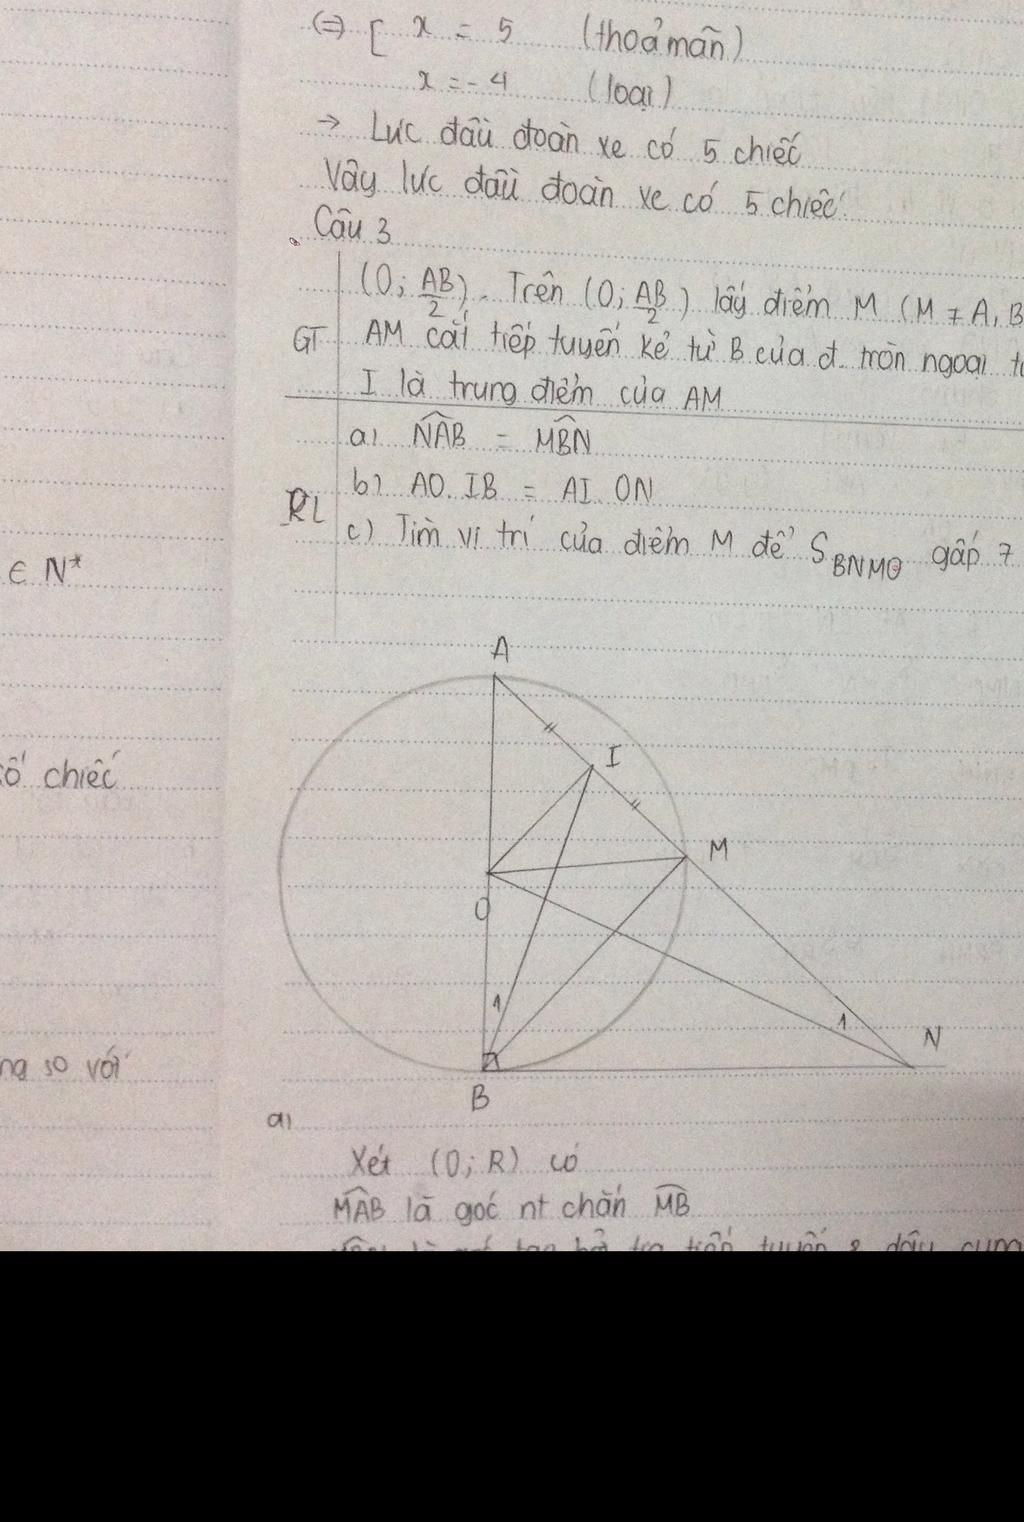 (=) [ x = 5 (thoả mãn)
x = - 4 (loại)
→ Lúc đầu đoàn xe có 5 chiếc
Vậy lúc đầu đoàn xe có 5 chiếc
Câu 3
(O; AB/2). Trên (O; AB/2) lấy điểm M (M ≠ A, B
GT AM cắt tiếp tuyến kẻ từ B của đ. tròn ngoại
I là trung điểm của AM
a) NAB = MBN
b) AO. IB = AI. ON
KL
c) Tìm vị trí của điểm M để S BNMO gấp 7
∈ N*
A
I
chiếc
M
O
1
1
N
so với
B
a)
Xét (O; R) có
MAB là góc nt chắn MB
tiếp tuyến & dây cung